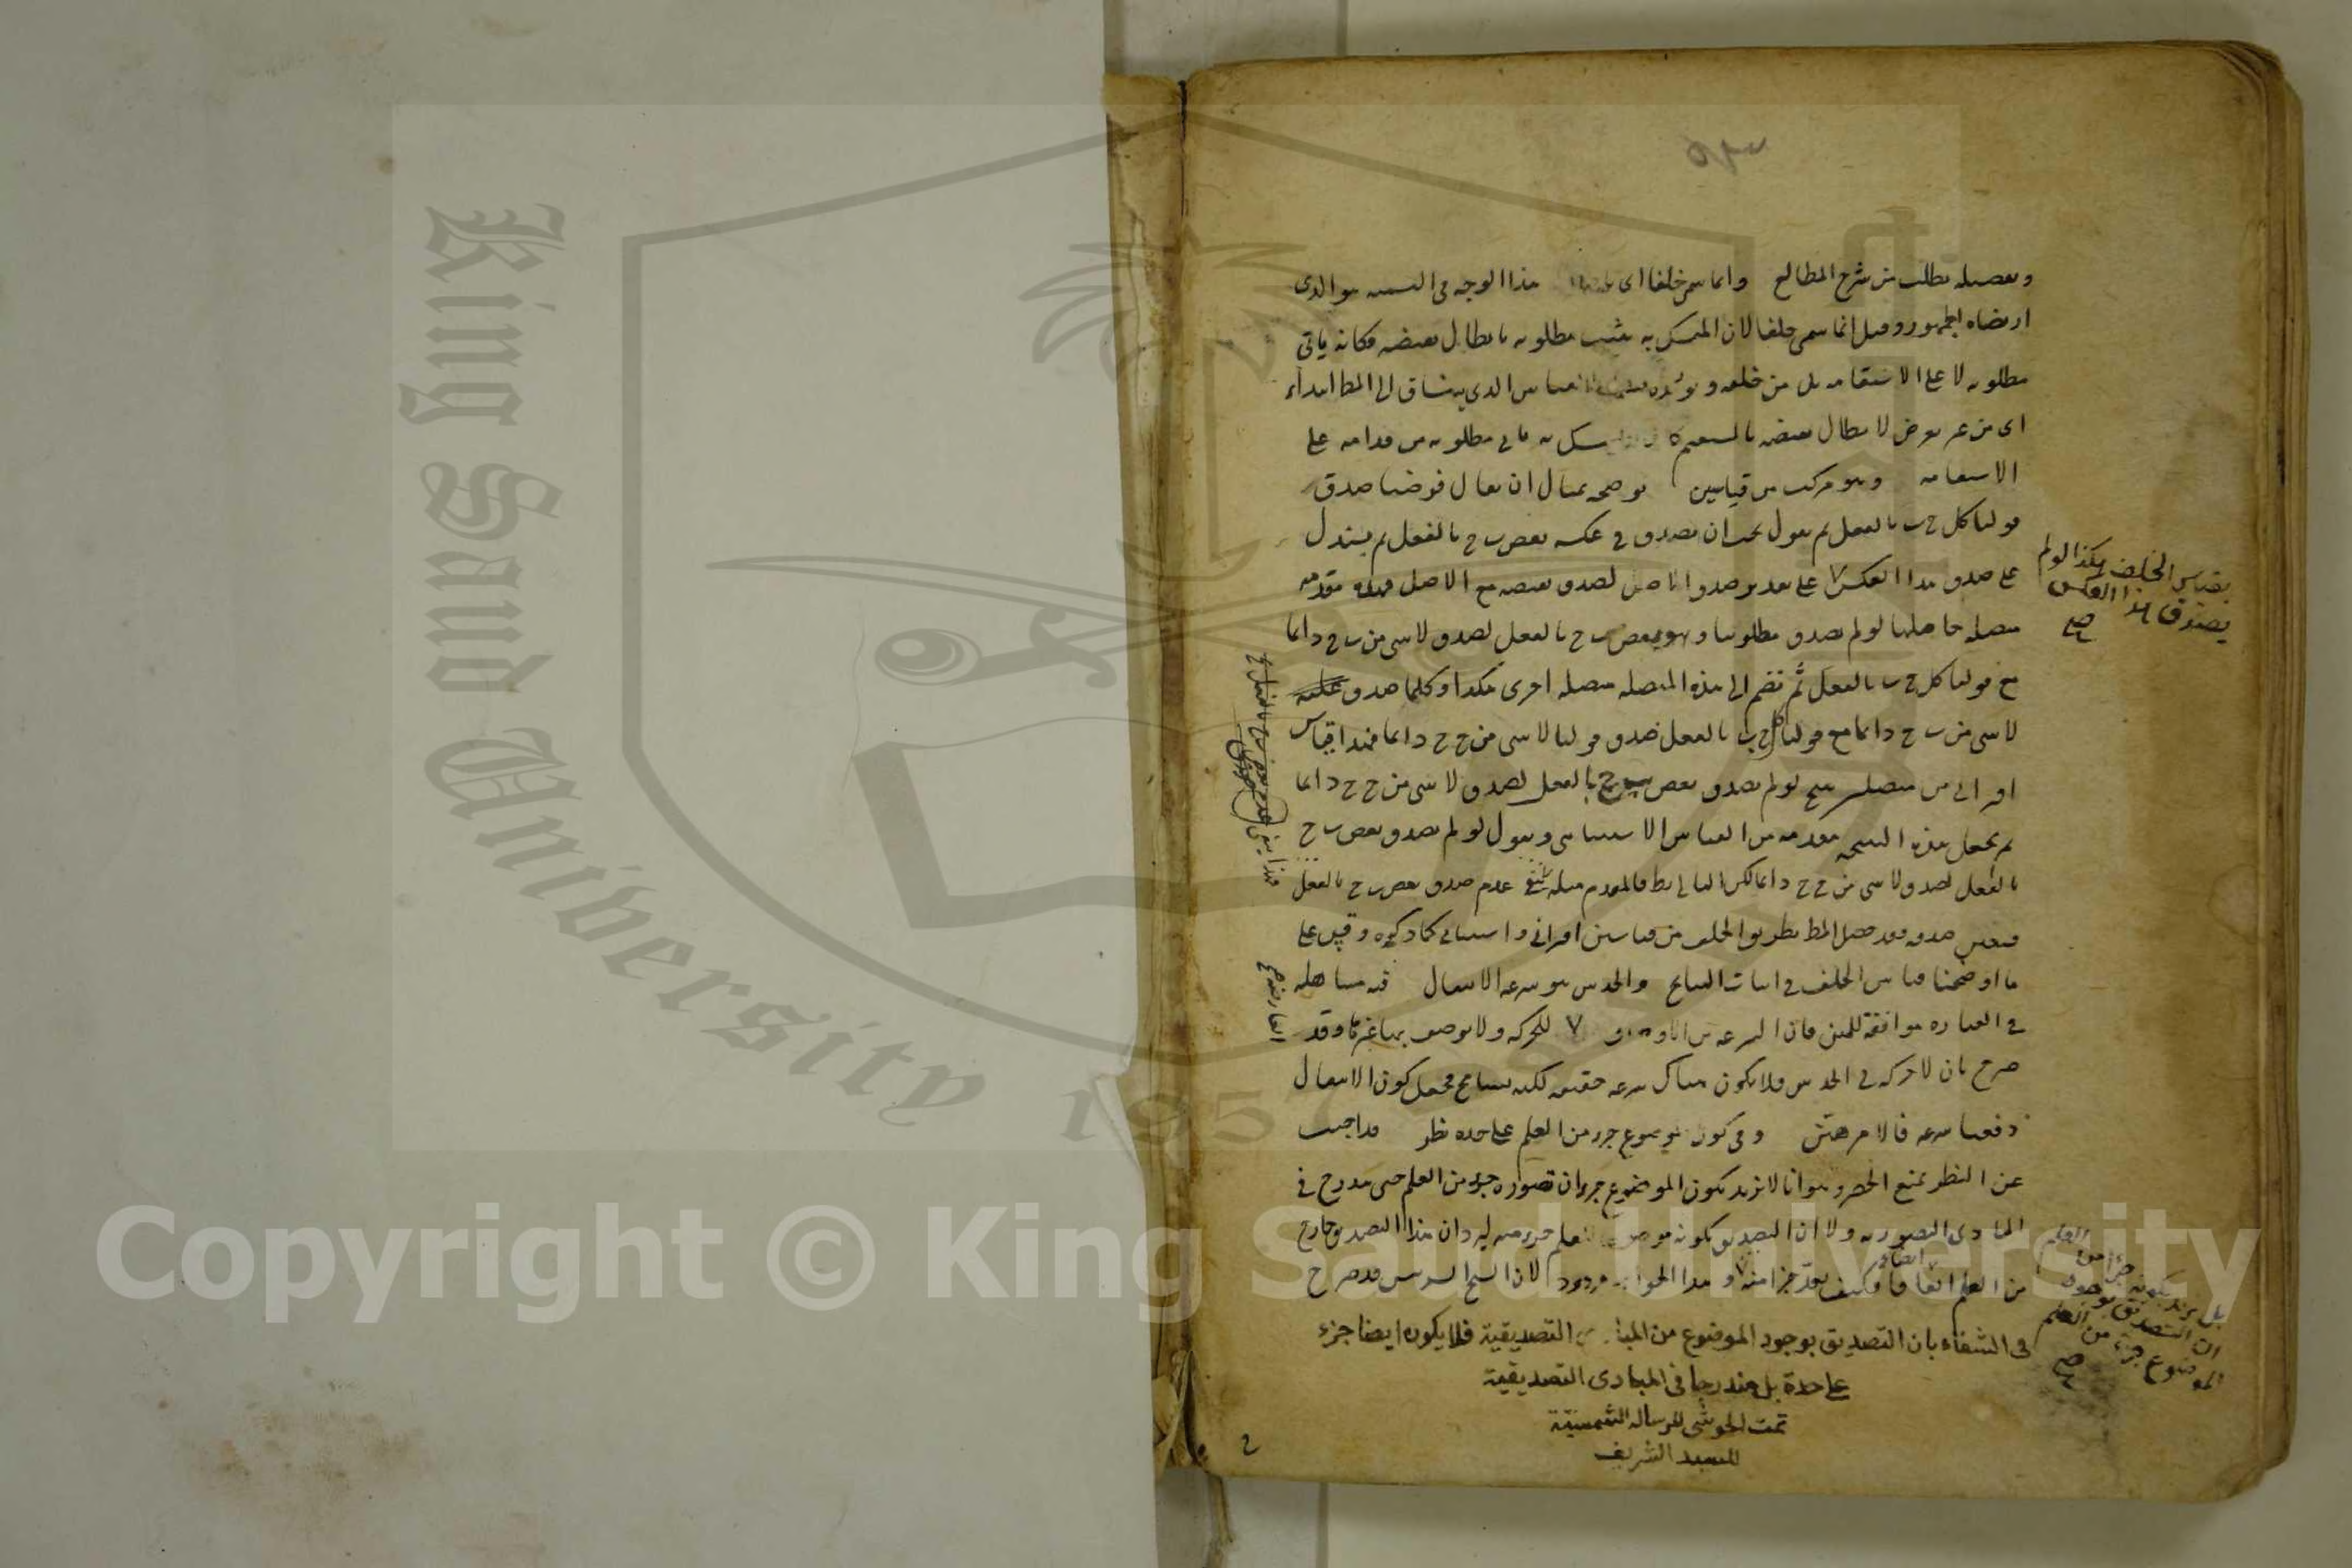 وتفصيله يطلب من شرح المطالع وانما سمى خلفا اى هذا الوجه فى التسمية هو الذى
ارتضاه الجمهور وقيل انما سمى خلفا لان المتمسك به يثبت مطلوبه بابطال نقيضه فكانه ياتى
مطلوبه لا على الاستقامة بل من خلفه ويؤيده تسمية القياس الذى ينساق الى المط ابتداء
اى من غير تعرض لابطال نقيضه بالمستقيم كان المتمسك به ياتى مطلوبه من قدامه على
الاستقامة وهو مركب من قياسين توضحه بمثال ان يقال فرضنا صدق
قولنا كل ج ب بالفعل ثم نقول يجب ان يصدق فى عكسه بعض ب ج بالفعل ثم يستدل
على صدق هذا العكس على تقدير صدق الاصل لصدق نقيضه مع الاصل فهذه مقدمة
متصلة حاصلها لو لم يصدق مطلوبنا وهو بعض ب ج بالفعل لصدق لا شى من ب ج دائما
مع قولنا كل ج ب بالفعل ثم نضم الى هذه المتصلة متصلة اخرى هكذا وكلما صدق
لا شى من ب ج دائما مع قولنا كل ج ب بالفعل صدق قولنا لا شى من ج ج دائما فهذا قياس
اقترانى من متصلتين ينتج لو لم يصدق بعض ب ج بالفعل لصدق لا شى من ج ج دائما
ثم نجعل هذه النتيجة مقدمة من القياس الاستثنائى ونقول لو لم يصدق بعض ب ج
بالفعل لصدق لا شى من ج ج دائما لكن التالى بط فالمقدم مثله عدم صدق بعض ب ج بالفعل
فتعين صدقه فقد حصل المط بطريق الخلف من قياسين اقترانى واستثنائى كما ذكره وقس على
ما اوضحنا قياس الخلف فى اثبات النتائج والحدس هو سرعة الانتقال فيه مساهلة
فى العبارة موافقة للمتن فان السرعة من الاوصاف للحركة ولا يوصف بها غيرها وقد
صرح بان لا حركة فى الحدس فلا يكون هناك سرعة حقيقة لكنه تسامح فجعل كون الانتقال
دفعيا سرعة فالامر هين وفى كون الموضوع جزء من العلم على حدة نظر قد اجيب
عن النظر بمنع الحصر وهو انا لا نريد بكون الموضوع جزء ان تصوره جزء من العلم حتى يندرج فى
المبادى التصورية ولا ان التصديق بكونه موضوعا للعلم جزء منه ليرد ان هذا التصديق خارج
من العلم اتفاقا فكيف يعد جزا منه وهذا الجواب مردود لان الشيخ الرئيس قد صرح
فى الشفاء بان التصديق بوجود الموضوع من المبادى التصديقية فلا يكون ايضا جزء
على حدة بل مندرجا فى المبادى التصديقية
تمت الحواشى للرسالة الشمسية
للسيد الشريف
بقياس الخلف هكذا لو لم
يصدق هذا العكس
صح
العارض صح
بل نريد بكونه جزءا من العلم
ان التصديق بوجود
الموضوع جزء من العلم
صح
ايضا
King Saud University 1957
Copyright © King Saud University